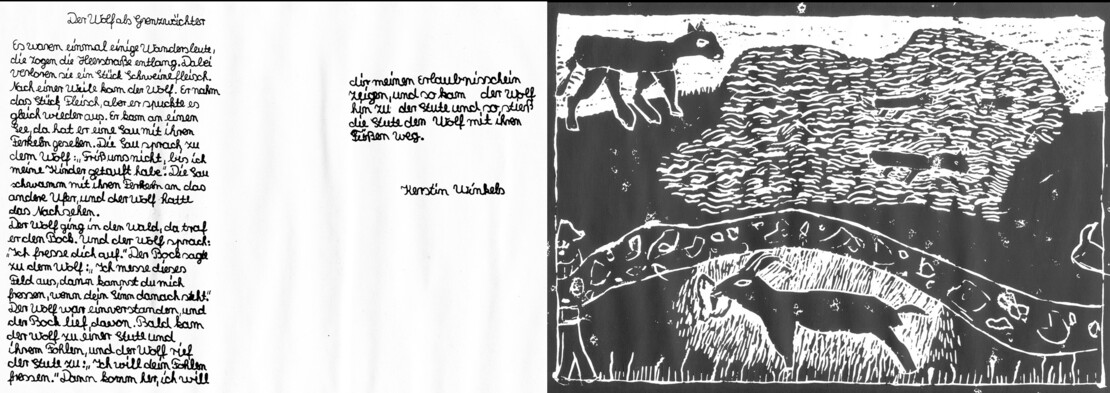 Der Wolf als Grenzwächter
Es waren einmal einige Wandersleute,
die zogen die Heerstraße entlang. Dabei
verloren sie ein Stück Schweinefleisch.
Nach einer Weile kam der Wolf. Er nahm
das Stück Fleisch, aber er spuckte es
gleich wieder aus. Er kam an einen
See, da hat er eine Sau mit ihren
Ferkeln gesehen. Die Sau sprach zu
dem Wolf: „Friß uns nicht, bis ich
meine Kinder getauft habe". Die Sau
schwamm mit ihren Ferkeln an das
andere Ufer, und der Wolf hatte
das Nachsehen.
Der Wolf ging in den Wald, da traf
er den Bock. Und der Wolf sprach:
„Ich fresse dich auf." Der Bock sagte
zu dem Wolf: „Ich messe dieses
Feld aus, dann kannst du mich
fressen, wenn dein Sinn danach steht."
Der Wolf war einverstanden, und
der Bock lief davon. Bald kam
der Wolf zu einer Stute und
ihrem Fohlen, und der Wolf rief
der Stute zu: „Ich will dein Fohlen
fressen." Dann komm her, ich will
dir meinen Erlaubnisschein
zeigen, und so kam der Wolf
hin zu der Stute und so stieß
die Stute den Wolf mit ihren
Füßen weg.
Kerstin Winkels